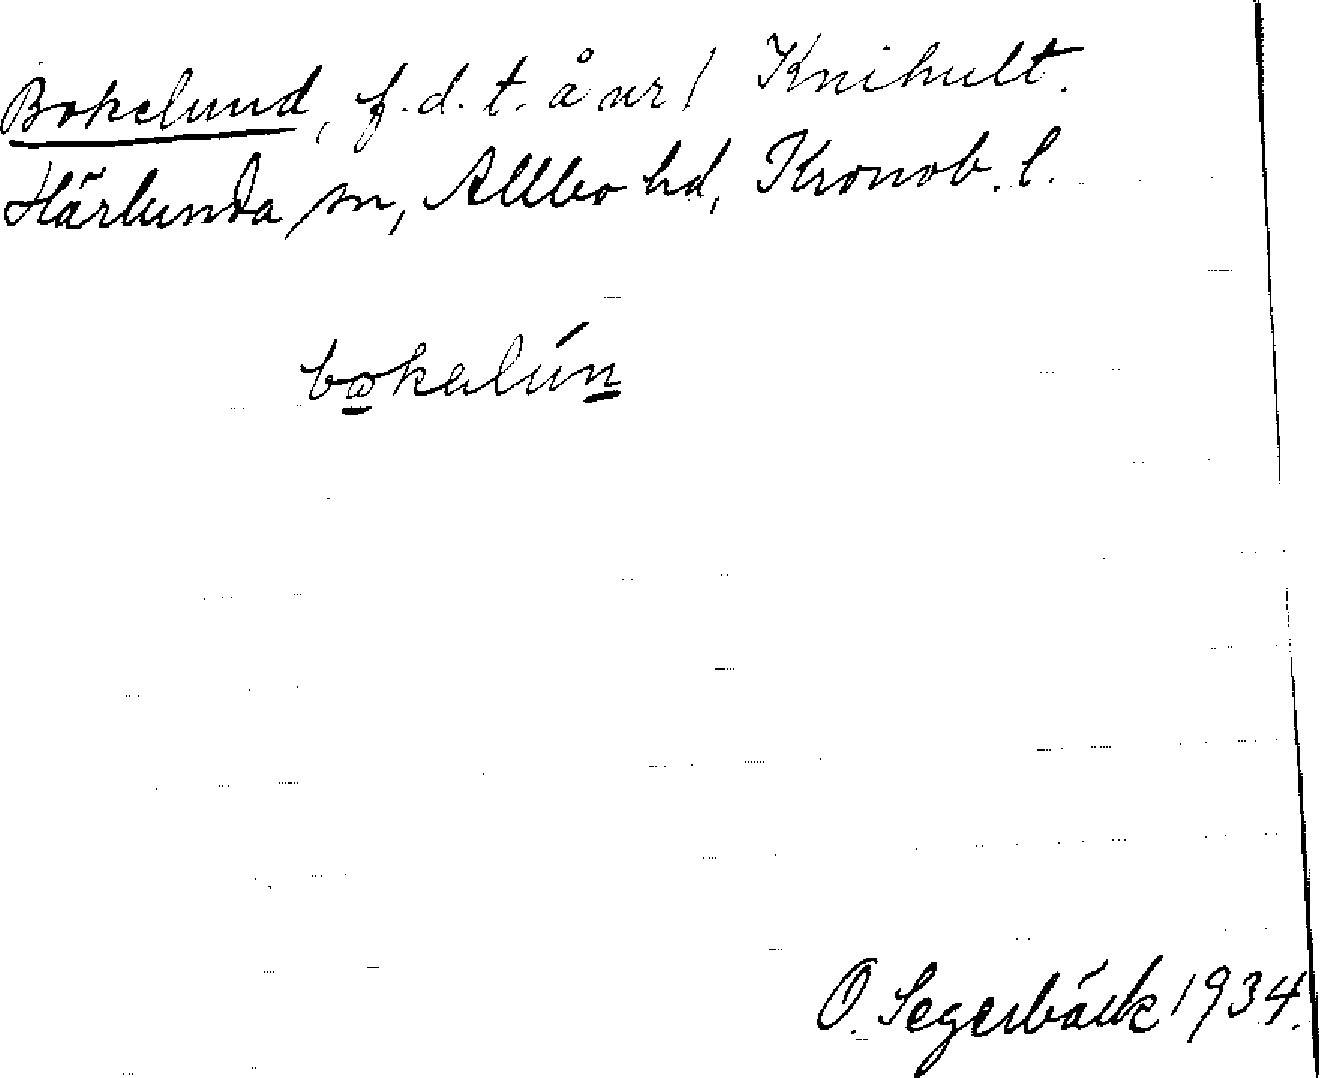 Bokelund, f.d.t. å nr 1 Knihult.
Härlunda sn, Allbo hd, Kronob. l.
bokalún
O. Segerbäck 1934.